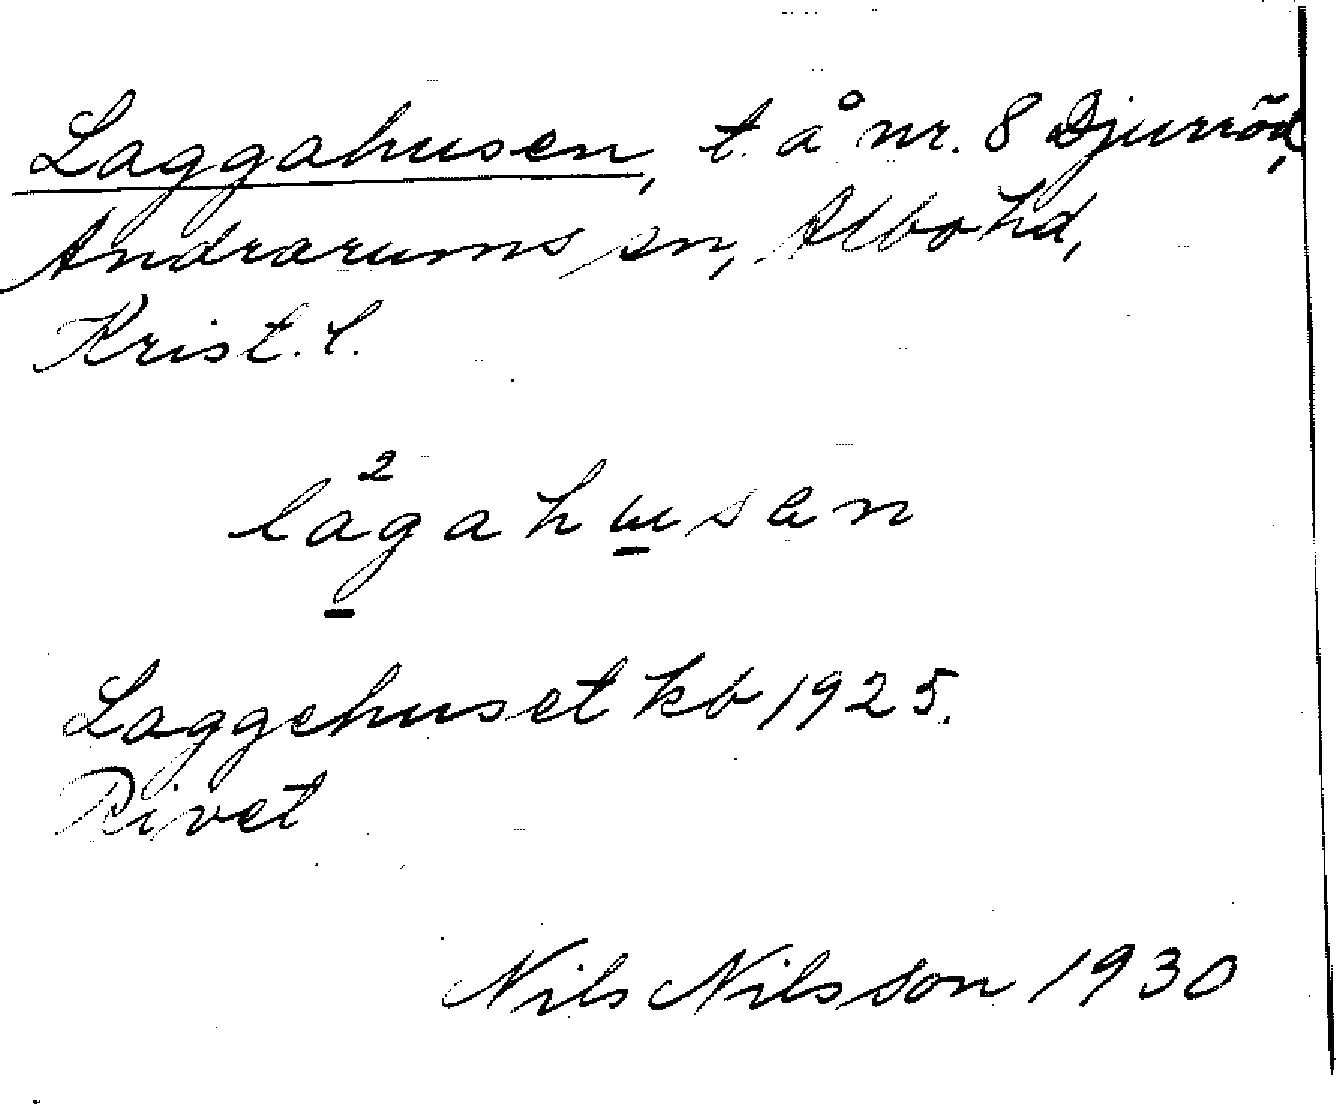 Laggahusen, t. å nr. 8 Djurröd,
Andrarums sn, Albo hd,
Krist. l.
2
lågahusen
Laggehuset kb 1925.
Rivet
Nils Nilsson 1930